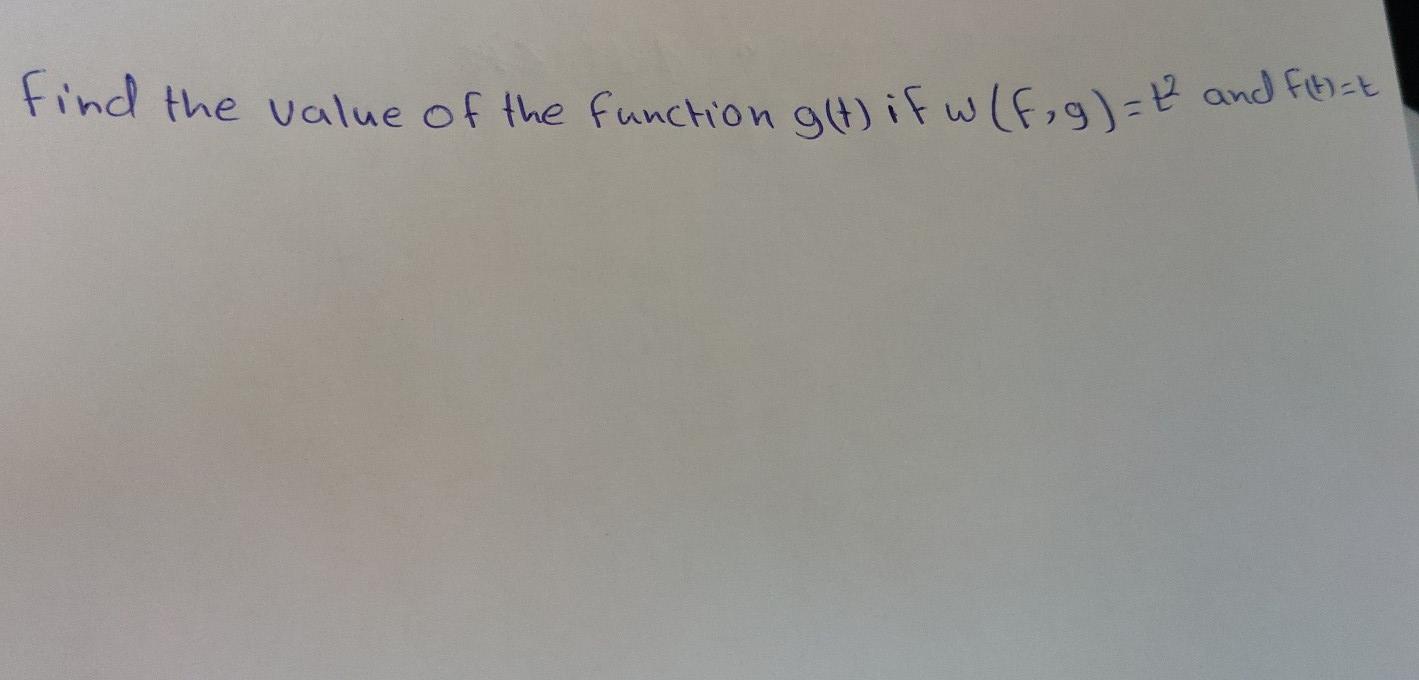 Find the value of the function g(t) if w(f,g)=t² and f(t)=t